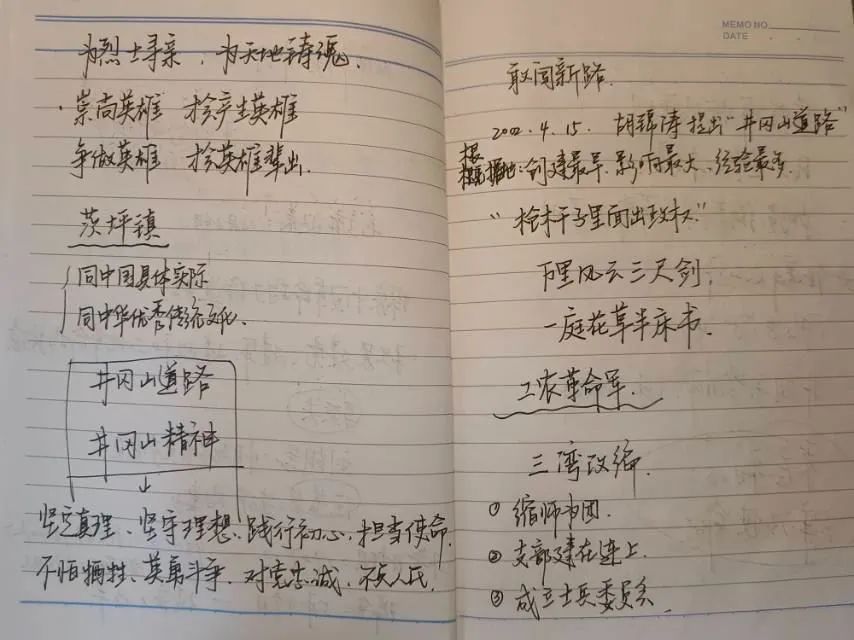 为烈士寻亲，为天地铸魂.
·崇尚英雄 才会产生英雄
争做英雄 才会英雄辈出.
茨坪镇
同中国具体实际
同中华优秀传统文化.
井冈山道路
井冈山精神
↓
坚定真理、坚守理想、践行初心、担当使命.
不怕牺牲、英勇斗争、对党忠诚、不负人民.
MEMO NO.
DATE
敢闯新路.
2002.4.15. 胡锦涛提出“井冈山道路”
根据地:创建最早、影响最大、经验最多.
“枪杆子里面出政权”
万里风云三尺剑,
一庭花草半床书.
工农革命军.
三湾改编.
① 缩师为团.
② 支部建在连上.
③ 成立士兵委员会.